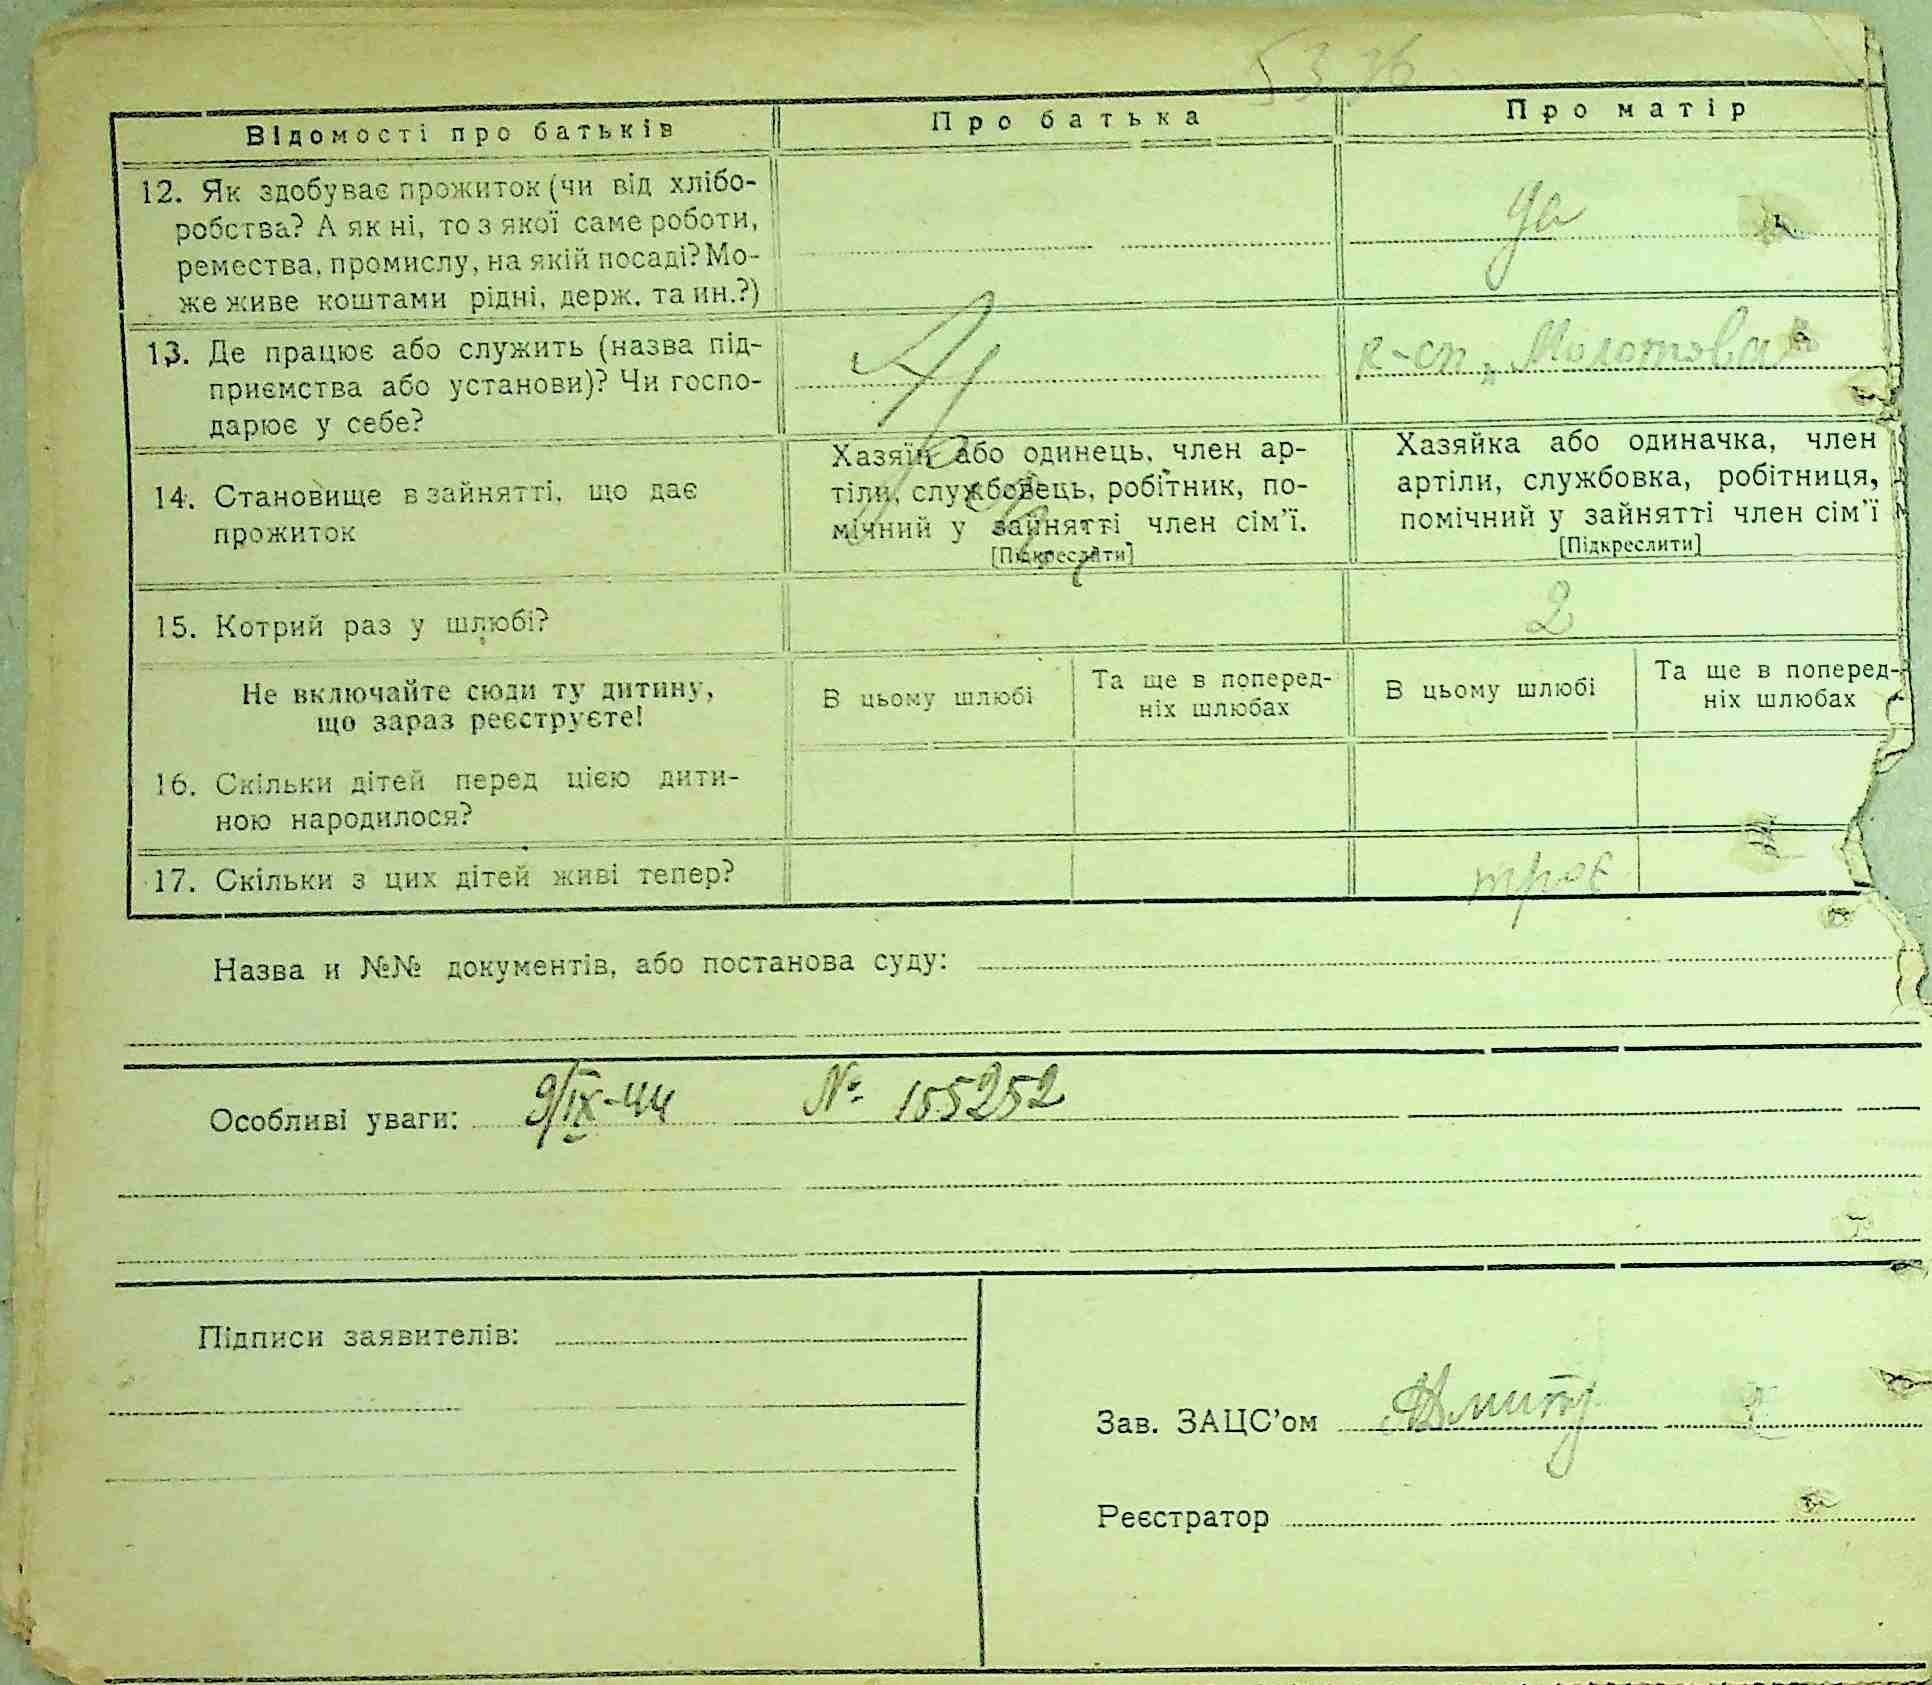 Відомості про батьків
Про батька
Про матір
12. Як здобуває прожиток (чи від хлібо-
робства? А як ні, то з якої саме роботи,
ремества, промислу, на якій посаді? Мо-
же живе коштами рідні, держ. та ин.?)
да
13. Де працює або служить (назва під-
приємства або установи)? Чи госпо-
дарює у себе?
к-сп „Молотова"
14. Становище в зайнятті, що дає
прожиток
Хазяїн або одинець, член ар-
тіли, службовець, робітник, по-
мічний у зайнятті член сім'ї.
[Підкреслити]
Хазяйка або одиначка, член
артіли, службовка, робітниця,
помічний у зайнятті член сім'ї
[Підкреслити]
15. Котрий раз у шлюбі?
2
Не включайте сюди ту дитину,
що зараз реєструєте!
В цьому шлюбі
Та ще в поперед-
ніх шлюбах
В цьому шлюбі
Та ще в поперед-
ніх шлюбах
16. Скільки дітей перед цією дити-
ною народилося?
17. Скільки з цих дітей живі тепер?
троє
Назва и №№ документів, або постанова суду:
Особливі уваги: 9/IX-44 № 155252
Підписи заявителів:
Зав. ЗАЦС'ом
Реєстратор